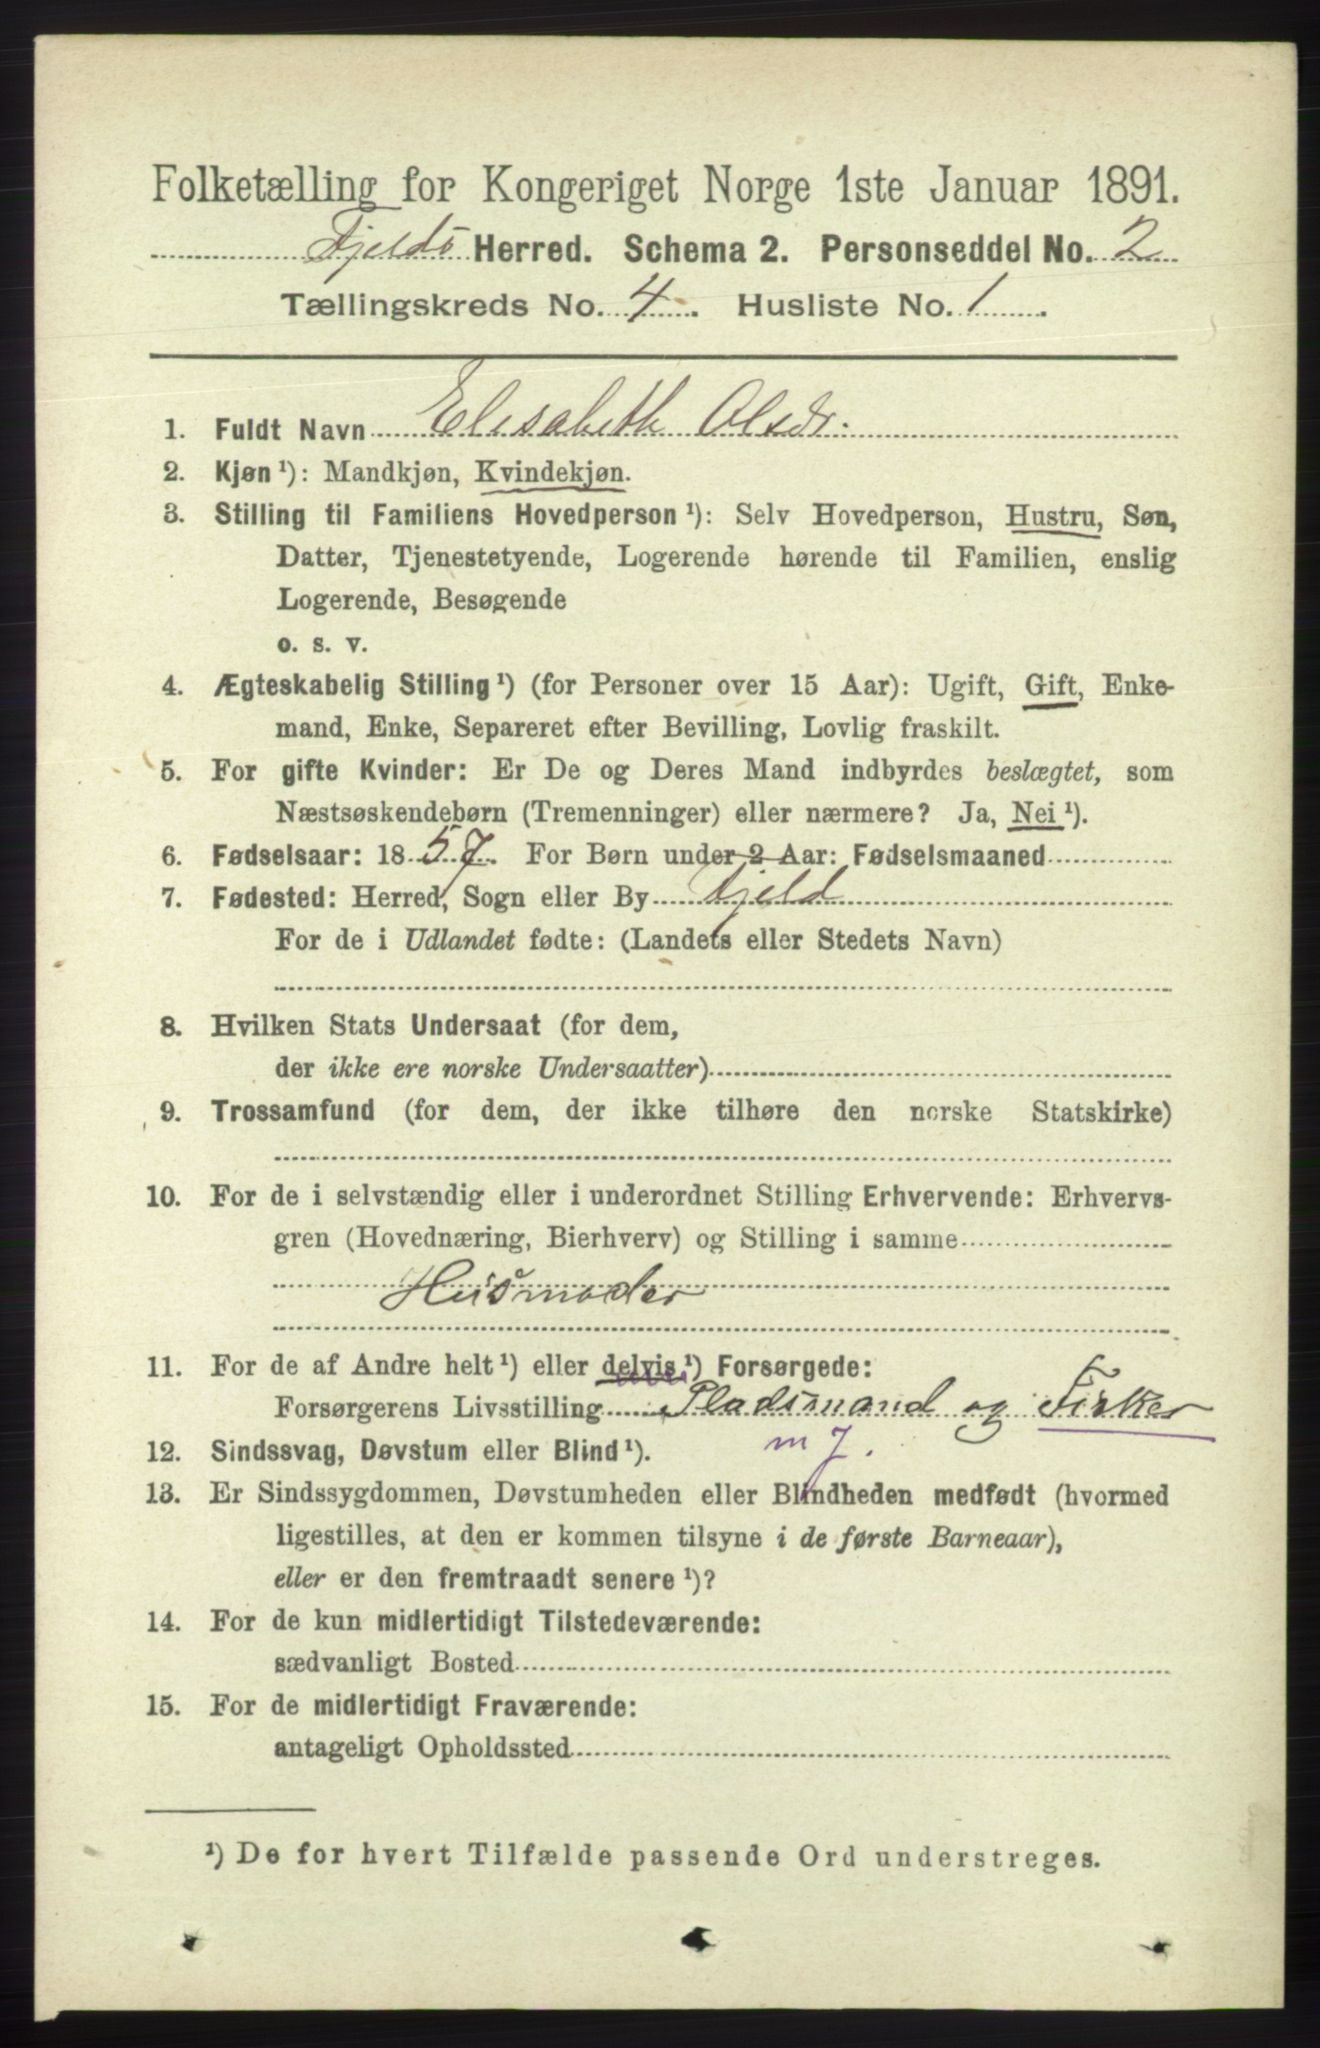 Folketælling for Kongeriget Norge 1ste Januar 1891.
Fjelds Herred. Schema 2. Personseddel No. 2
Tællingskreds No. 4. Husliste No. 1.
1. Fuldt Navn Elisabeth Olsdr.
2. Kjøn ¹): Mandkjøn, Kvindekjøn.
3. Stilling til Familiens Hovedperson ¹): Selv Hovedperson, Hustru, Søn,
Datter, Tjenestetyende, Logerende hørende til Familien, enslig
Logerende, Besøgende
o. s. v.
4. Ægteskabelig Stilling ¹) (for Personer over 15 Aar): Ugift, Gift, Enke-
mand, Enke, Separeret efter Bevilling, Lovlig fraskilt.
5. For gifte Kvinder: Er De og Deres Mand indbyrdes beslægtet, som
Næstsøskendebørn (Tremenninger) eller nærmere? Ja, Nei ¹).
6. Fødselsaar: 1857. For Børn under 2 Aar: Fødselsmaaned
7. Fødested: Herred, Sogn eller By Fjeld
For de i Udlandet fødte: (Landets eller Stedets Navn)
8. Hvilken Stats Undersaat (for dem,
der ikke ere norske Undersaatter)
9. Trossamfund (for dem, der ikke tilhøre den norske Statskirke)
10. For de i selvstændig eller i underordnet Stilling Erhvervende: Erhvervs-
gren (Hovednæring, Bierhverv) og Stilling i samme
Husmoder
11. For de af Andre helt ¹) eller delvis ¹) Forsørgede:
Forsørgerens Livsstilling Pladsmand og Fisker
12. Sindssvag, Døvstum eller Blind ¹). m j.
13. Er Sindssygdommen, Døvstumheden eller Blindheden medfødt (hvormed
ligestilles, at den er kommen tilsyne i de første Barneaar),
eller er den fremtraadt senere ¹)?
14. For de kun midlertidigt Tilstedeværende:
sædvanligt Bosted
15. For de midlertidigt Fraværende:
antageligt Opholdssted
¹) De for hvert Tilfælde passende Ord understreges.